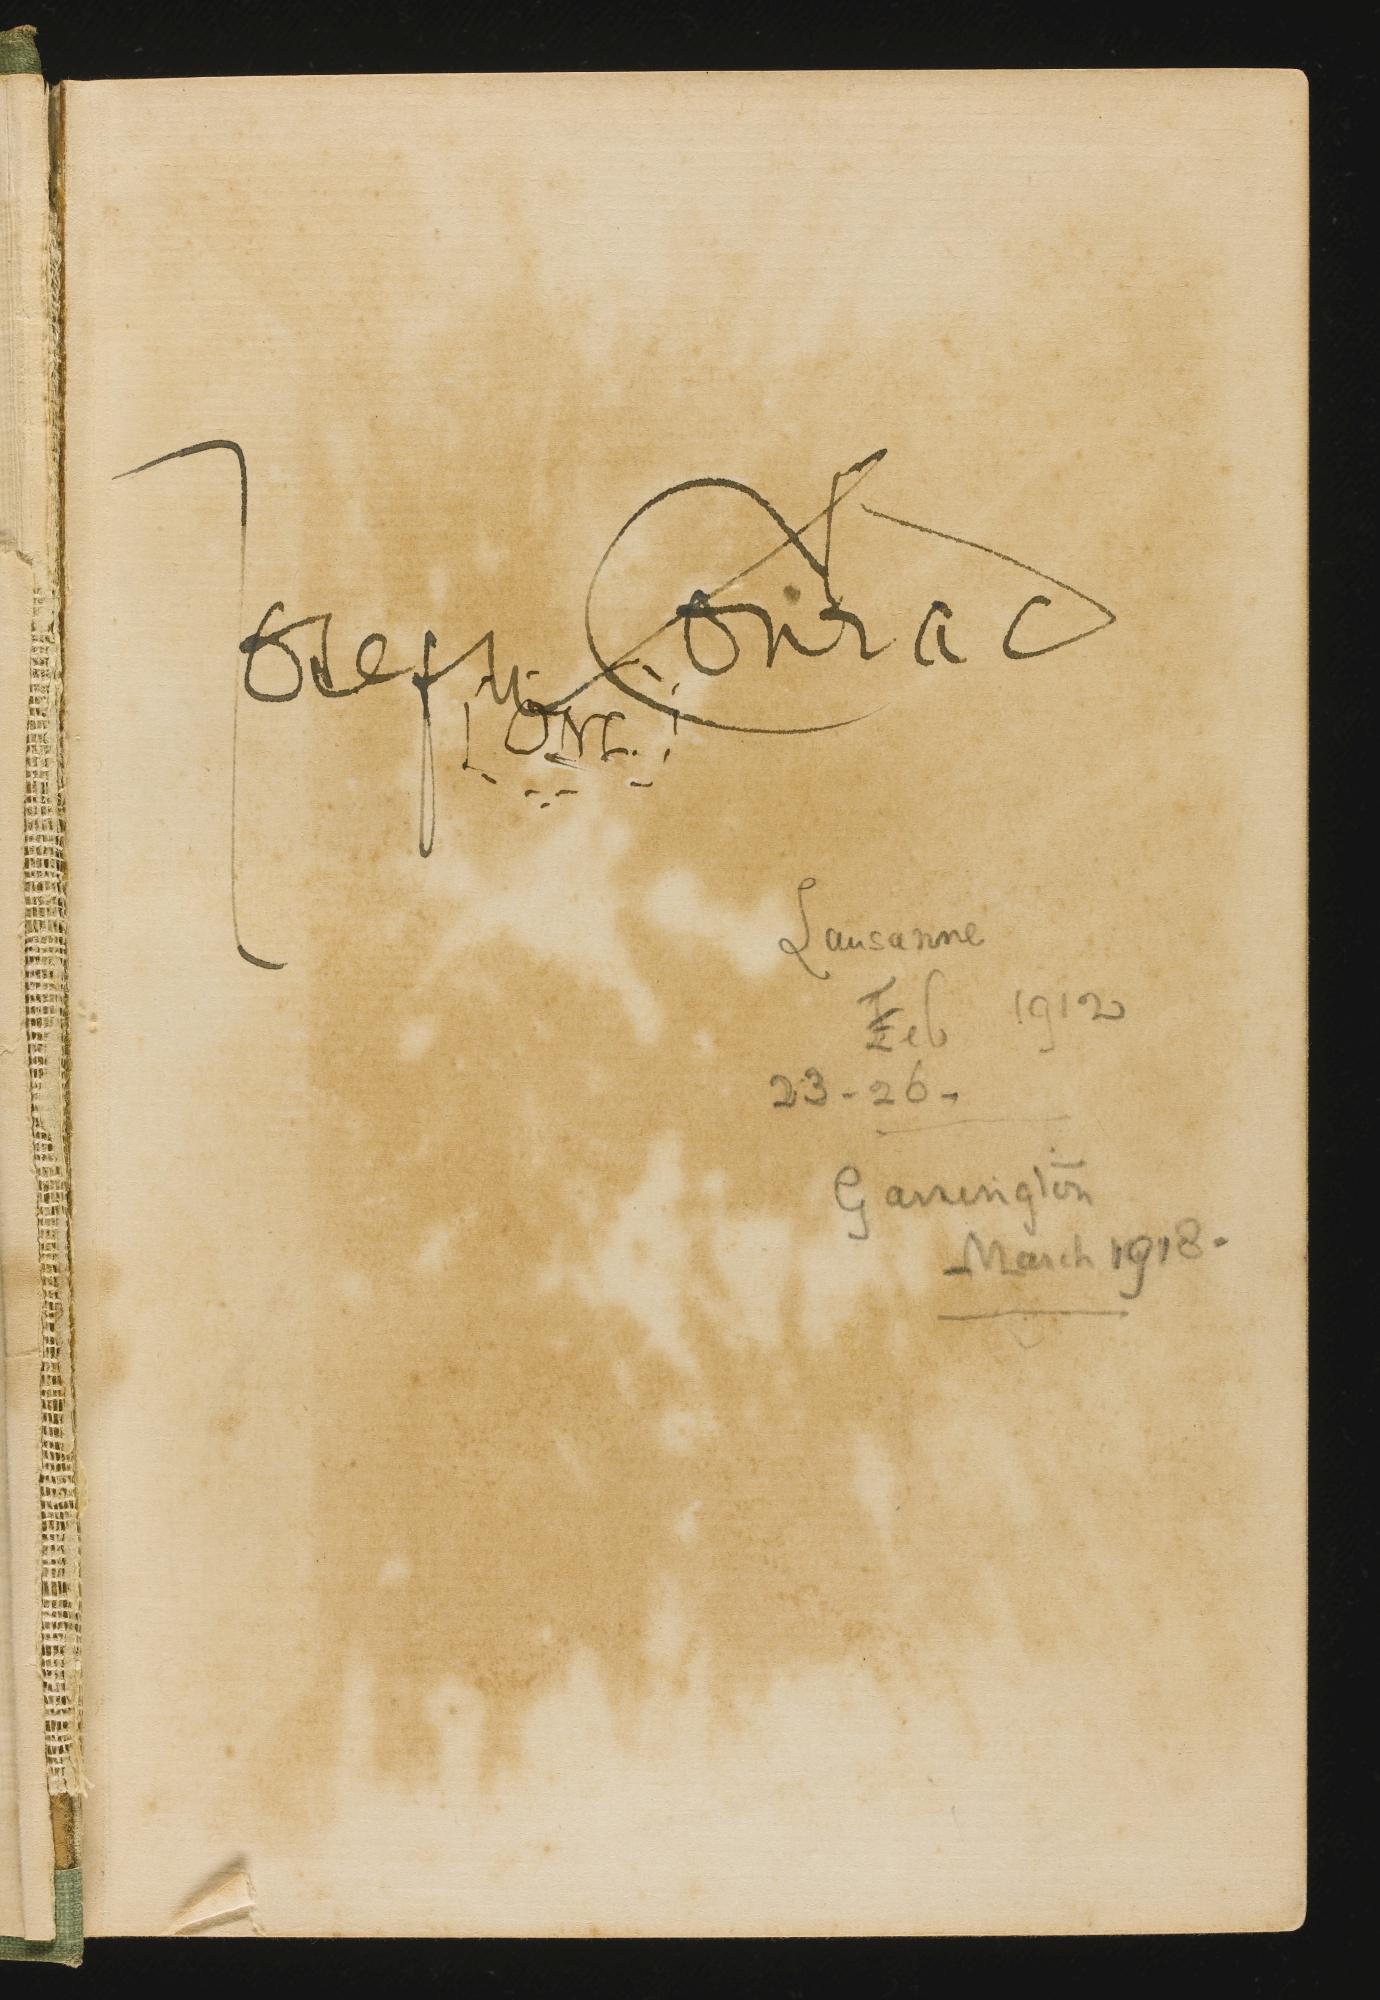 Joseph Conrad
Lausanne
Feb 1912
23-26-
Garrington
March 1918-